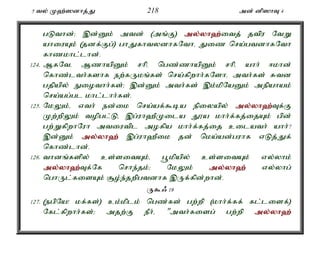 5 வல் முஹ்ஸனாத்து 218 அன் னிஸாவு 4
படுவான்; இன்னும் அவன் (அங்கு) அல்லாஹ்வைத் தவிர வேறு
யாரையும் (தனக்குப்) பாதுகாவலனாகவோ, துணை செய்பவனாகவோ
காணமாட்டான்.
124. ஆகவே, ஆணாயினும் சரி, பெண்ணாயினும் சரி, யார் ஈமான்
கொண்டவர்களாக நற்கருமங்கள் செய்கிறார்களோ, அவர்கள் சுவன
பதியில் நுழைவார்கள்; இன்னும் அவர்கள் இம்மியேனும் அநியாயம்
செய்யப்பட மாட்டார்கள்.
125. மேலும், எவர் நன்மை செய்யக்கூடிய நிலையில் அல்லாஹ்வுக்கு
முற்றிலும் வழிபட்டு, இப்ராஹீமுடைய தூய மார்க்கத்தையும் பின்
பற்றுகிறாரோ அவரைவிட அழகிய மார்க்கத்தை உடையவர் யார்?
இன்னும் அல்லாஹ் இப்ராஹீமை தன் மெய்யன்பராக எடுத்துக்
கொண்டான்.
126. வானங்களில் உள்ளவையும், பூமியில் உள்ளவையும் எல்லாம்
அல்லாஹ்வுக்கே சொந்தம்; மேலும் அல்லாஹ் எல்லாப்
பொருட்களையும் சூழ்ந்தறிபவனாக இருக்கின்றான்.
ருகூஃ 19
127. (நபியே! மக்கள்) உம்மிடம் பெண்கள் பற்றி (மார்க்கக் கட்டளைக்)
கேட்கிறார்கள்; அதற்கு நீர், "அவர்களைப் பற்றி அல்லாஹ்